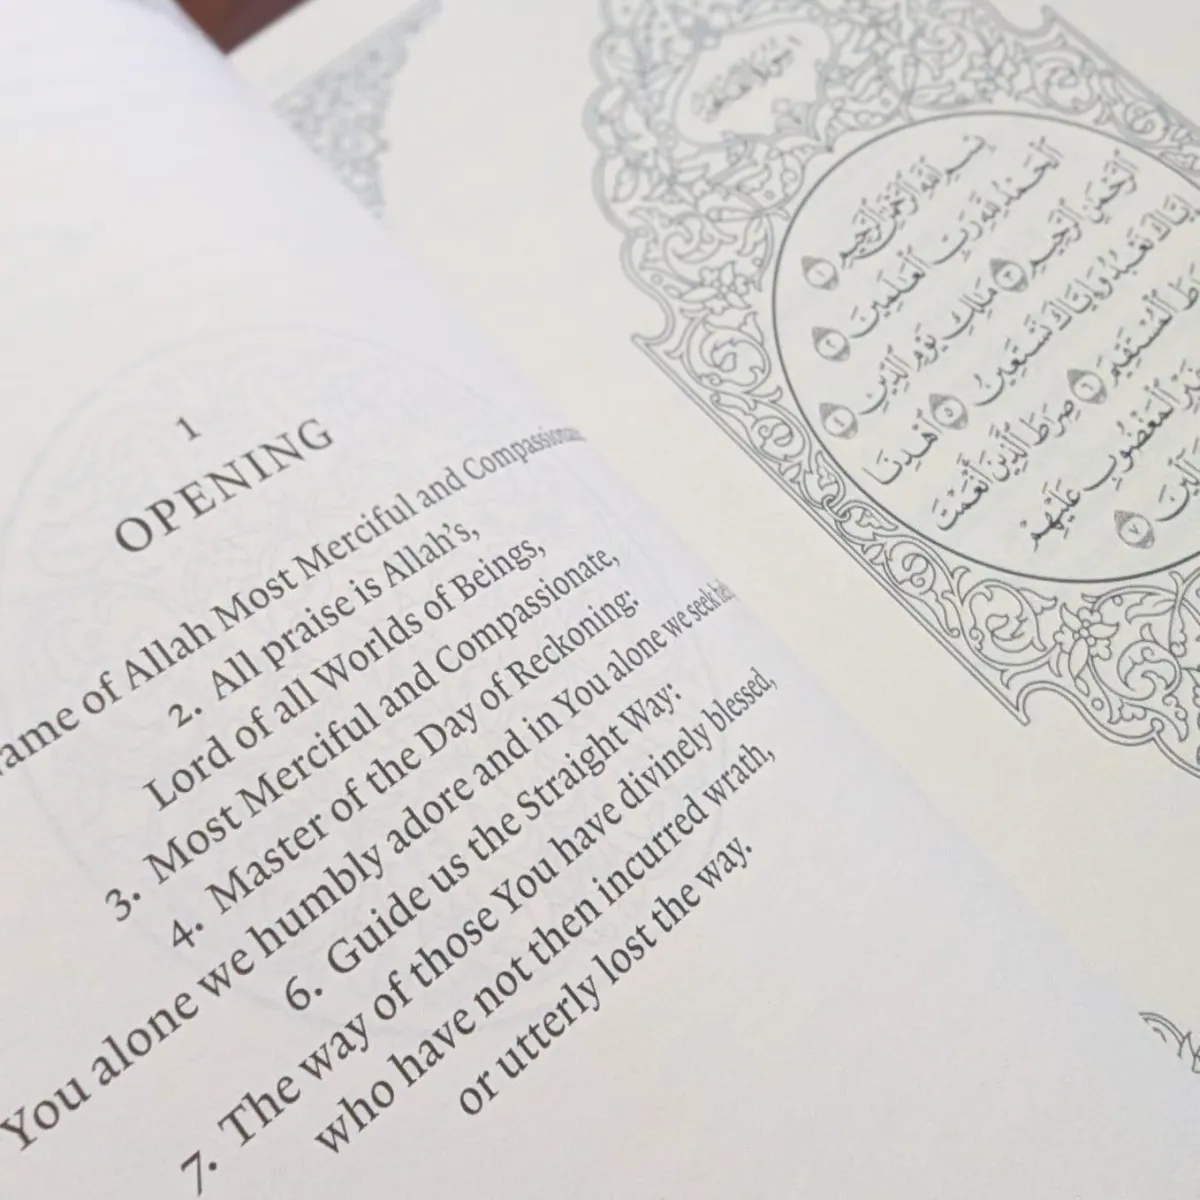 1
OPENING
ame of Allah Most Merciful and Compassionate
2. All praise is Allah's,
Lord of all Worlds of Beings,
3. Most Merciful and Compassionate,
4. Master of the Day of Reckoning:
You alone we humbly adore and in You alone we seek
6. Guide us the Straight Way:
7. The way of those You have divinely blessed,
who have not then incurred wrath,
or utterly lost the way.
بِسْمِ اللَّهِ الرَّحْمَٰنِ الرَّحِيمِ ١
الْحَمْدُ لِلَّهِ رَبِّ الْعَالَمِينَ ٢
الرَّحْمَٰنِ الرَّحِيمِ ٣ مَالِكِ يَوْمِ الدِّينِ ٤
إِيَّاكَ نَعْبُدُ وَإِيَّاكَ نَسْتَعِينُ ٥ اهْدِنَا
الْمُسْتَقِيمَ ٦ صِرَاطَ الَّذِينَ أَنْعَمْتَ
الْمَغْضُوبِ عَلَيْهِمْ
٧